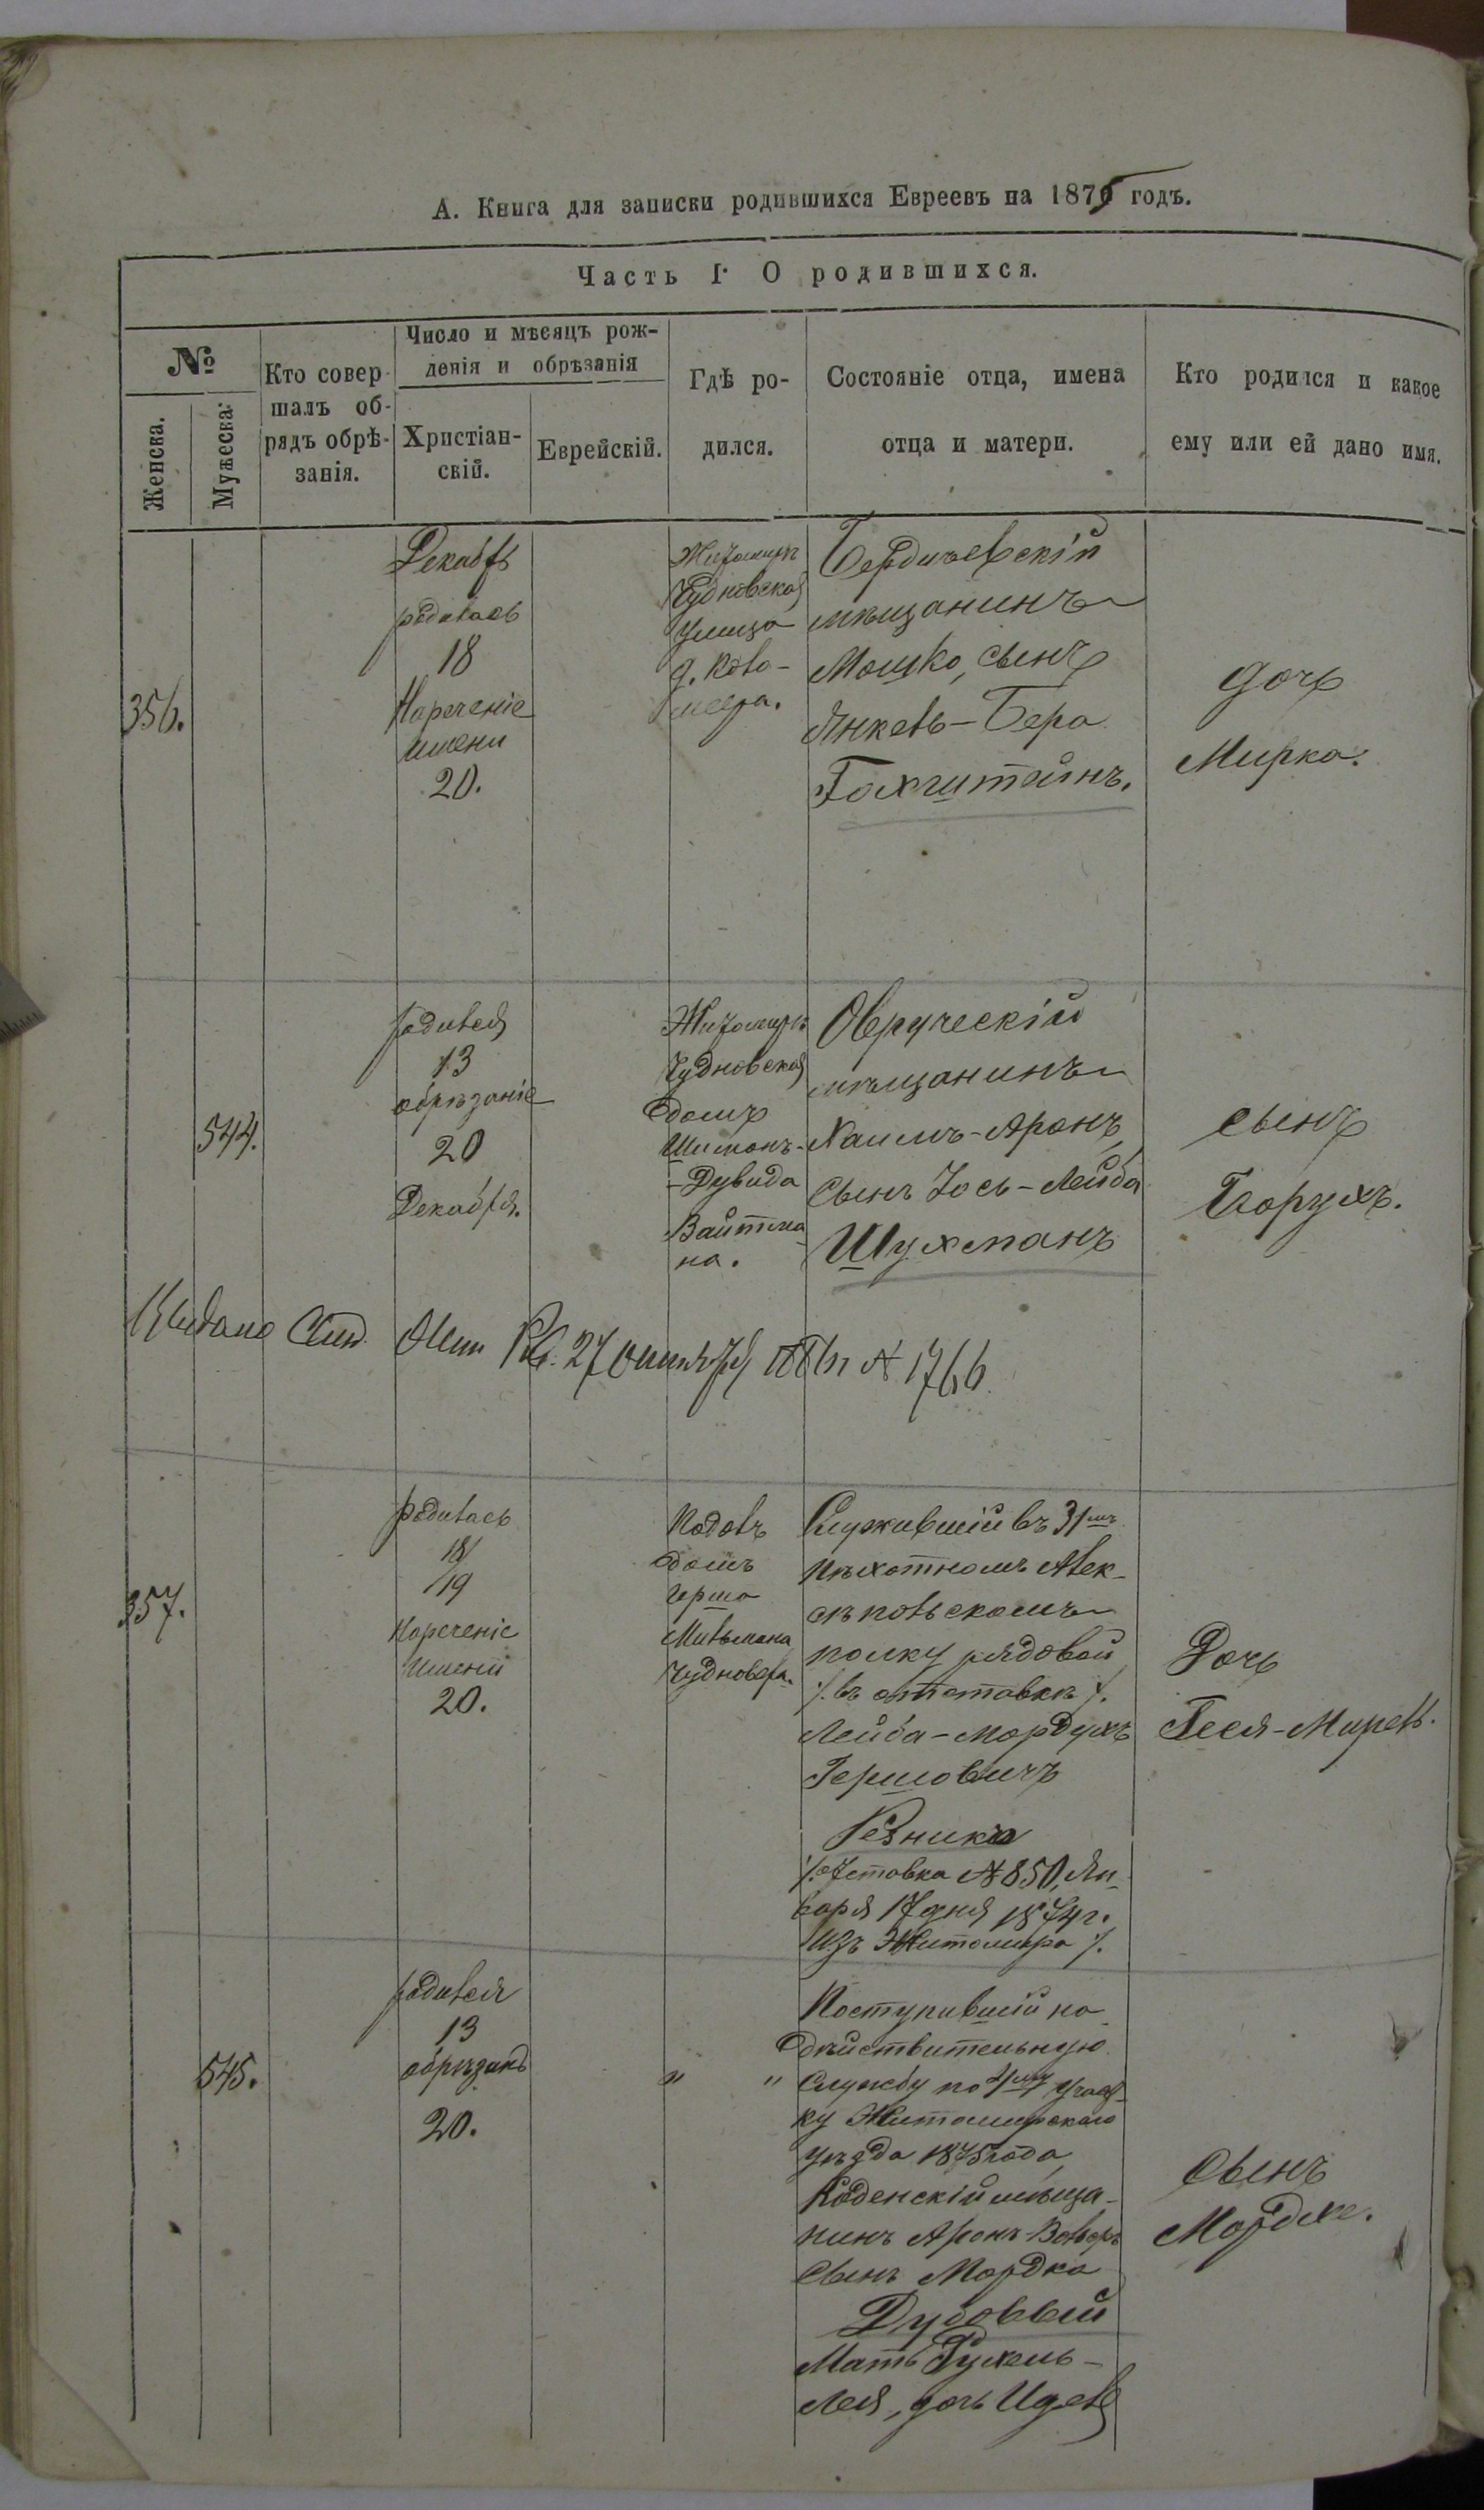 А. Книга для записки родившихся Евреевъ на 1875 годъ.
Часть I О родившихся.
№
Женска.
Мужеска.
Кто совер-
шалъ об-
рядъ обрѣ-
занія.
Число и мѣсяцъ рож-
денія и обрѣзанія
Христіан-
скій.
Еврейскій.
Гдѣ ро-
дился.
Состояніе отца, имена
отца и матери.
Кто родился и какое
ему или ей дано имя.
356.
Декабрь
родилась
18
Нареченіе
имени
20.
Житомиръ
Чудновская
улица
д.
Бердичевскій
мѣщанинъ
Мошко, сынъ
Янкель-Бера
Гохштейнъ.
дочь
Мирка.
544.
родился
13
обрѣзаніе
20
Декабря.
Житомиръ
Чудновская
домъ
Шимонъ-
-Дувида
Вайтма
на.
Овруческій
мѣщанинъ
Хаимъ-Аронъ,
сынъ Іось-Лейба
Шухманъ
сынъ
Борухъ.
Выдано 27 октября № 1766.
357.
родилась
18/19
Нареченіе
имени
20.
домъ
Герша
Мильмана
Служившій въ 31мъ
пѣхотномъ Алек-
сѣпольскомъ
полку рядовой
/. въ отставкѣ /.
Лейба-Мордухъ
Гершовичъ
Резникъ
/. отставка № 850, Ян-
варя 17 дня 1874 г.
изъ Житомира /.
Дочь
Геся-Мирель.
545.
родился
13
обрѣзанъ
20.
" "
Поступившій на
дѣйствительную
службу по 4му участ-
ку Житомирскаго
уѣзда 1875 года,
Коденскій мѣща-
нинъ Аронъ-Вольфъ
сынъ Мордка
Дубовый
Мать Рухель-
Лея, дочь Иделя
Сынъ
Мордхе.